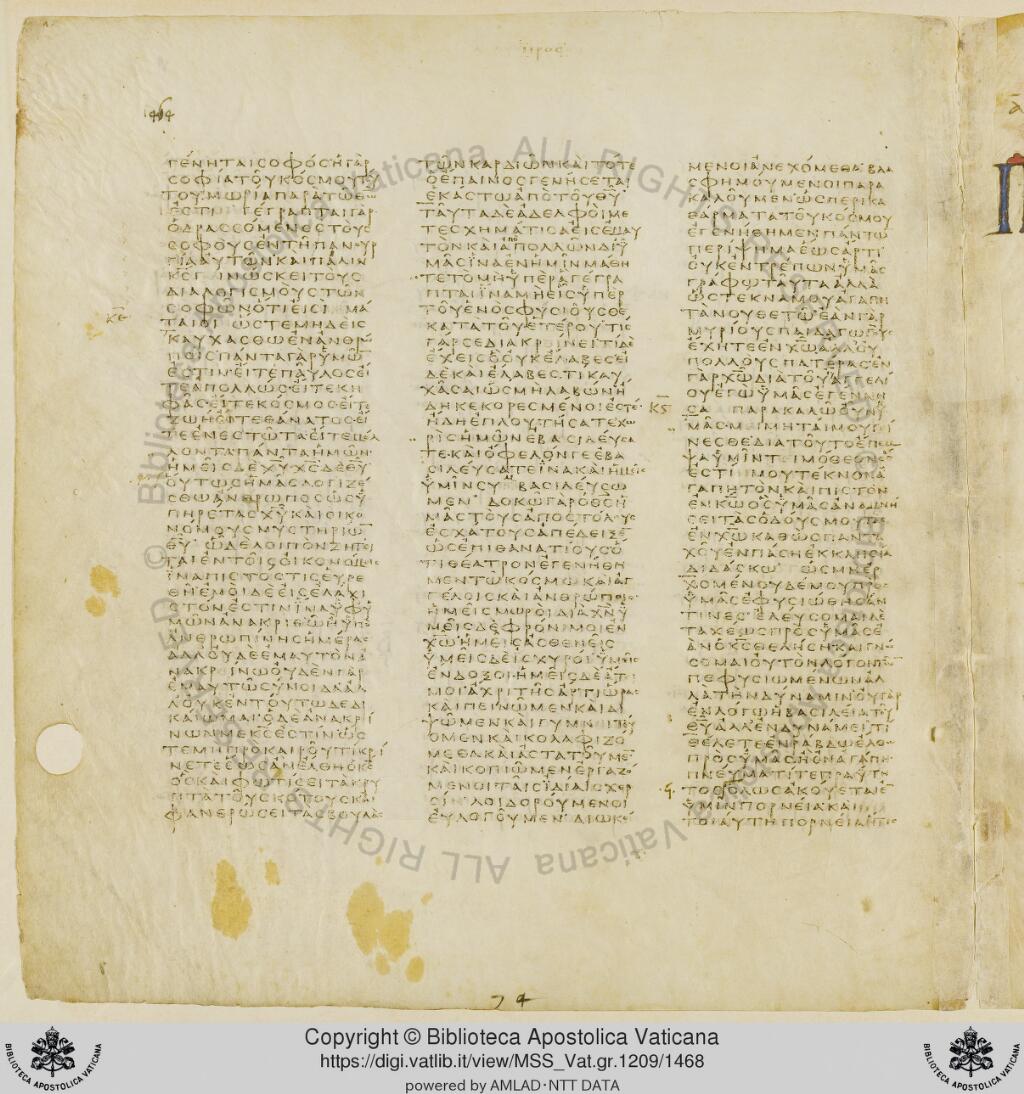 προς
ΓΕΝΗΤΑΙΣΟΦΟΣΗΓΑΡ
ΣΟΦΙΑΤΟΥΚΟΣΜΟΥΤΟΥ
ΤΟΥΜΩΡΙΑΠΑΡΑΤΩΘΕ
ΩΕΣΤΙΝ ΓΕΓΡΑΠΤΑΙΓΑΡ
ΟΔΡΑΣΣΟΜΕΝΟΣΤΟΥΣ
ΣΟΦΟΥΣΕΝΤΗΠΑΝΟΥΡ
ΓΙΑΑΥΤΩΝΚΑΙΠΑΛΙΝ
ΚΣ ΓΕΙΝΩΣΚΕΙΤΟΥΣ
ΔΙΑΛΟΓΙΣΜΟΥΣΤΩΝ
ΣΟΦΩΝΟΤΙΕΙΣΙΝΜΑ
ΤΑΙΟΙ ΩΣΤΕΜΗΔΕΙΣ
ΚΑΥΧΑΣΘΩΕΝΑΝΘΡΩ
ΠΟΙΣΠΑΝΤΑΓΑΡΥΜΩ̅
ΕΣΤΙΝΕΙΤΕΠΑΥΛΟΣΕΙ
ΤΕΑΠΟΛΛΩΣΕΙΤΕΚΗ
ΦΑΣΕΙΤΕΚΟΣΜΟΣΕΙΤΕ
ΖΩΗΕΙΤΕΘΑΝΑΤΟΣΕΙ
ΤΕΕΝΕΣΤΩΤΑΕΙΤΕΜΕΛ
ΛΟΝΤΑΠΑΝΤΑΗΜΩΝ
ΥΜΕΙΣΔΕΧΥΧΣΔΕΘΥ
ΟΥΤΩΣΗΜΑΣΛΟΓΙΖΕ
ΣΘΩΑΝΘΡΩΠΟΣΩΣΥ
ΠΗΡΕΤΑΣΧΥΚΑΙΟΙΚΟ
ΝΟΜΟΥΣΜΥΣΤΗΡΙΩ̅
ΘΥ ΩΔΕΛΟΙΠΟΝΖΗΤΕΙ
ΤΑΙΕΝΤΟΙΣΟΙΚΟΝΟΜΟΙΣ
ΙΝΑΠΙΣΤΟΣΤΙΣΕΥΡΕ
ΘΗΕΜΟΙΔΕΕΙΣΕΛΑΧΙ
ΣΤΟΝΕΣΤΙΝΙΝΑΥΦΥ
ΜΩΝΑΝΑΚΡΙΘΩΗΥΠΟ
ΑΝΘΡΩΠΙΝΗΣΗΜΕΡΑΣ
ΑΛΛΟΥΔΕΕΜΑΥΤΟΝΑ
ΝΑΚΡΕΙΝΩΟΥΔΕΝΓΑΡ
ΕΜΑΥΤΩΣΥΝΟΙΔΑΑΛ
ΛΟΥΚΕΝΤΟΥΤΩΔΕΔΙ
ΚΑΙΩΜΑΙΟΔΕΑΝΑΚΡΙ
ΝΩΝΜΕΚΣΕΣΤΙΝΩΣ
ΤΕΜΗΠΡΟΚΑΙΡΟΥΤΙΚΡΙ
ΝΕΤΕΕΩΣΑΝΕΛΘΗΟΚΣ
ΟΣΚΑΙΦΩΤΙΣΕΙΤΑΚΡΥ
ΠΤΑΤΟΥΣΚΟΤΟΥΣΚΑΙ
ΦΑΝΕΡΩΣΕΙΤΑΣΒΟΥΛΑΣ
ΤΩΝΚΑΡΔΙΩΝΚΑΙΤΟΤΕ
ΟΕΠΑΙΝΟΣΓΕΝΗΣΕΤΑΙ
ΕΚΑΣΤΩΑΠΟΤΟΥΘΥ
ΤΑΥΤΑΔΕΑΔΕΛΦΟΙΜΕ
ΤΕΣΧΗΜΑΤΙΣΑΕΙΣΕΜΑΥ
ΤΟΝΚΑΙΑΠΟΛΛΩΝΔΙΥ
ΜΑΣΙΝΑΕΝΗΜΙΝΜΑΘΗ
ΤΕΤΟΜΗΥΠΕΡΑΓΕΓΡΑ
ΠΤΑΙΙΝΑΜΗΕΙΣΥΠΕΡ
ΤΟΥΕΝΟΣΦΥΣΙΟΥΣΘΕ
ΚΑΤΑΤΟΥΕΤΕΡΟΥΤΙΣ
ΓΑΡΣΕΔΙΑΚΡΙΝΕΙΤΙΔΕ
ΕΧΕΙΣΟΟΥΚΕΛΑΒΕΣΕΙ
ΔΕΚΑΙΕΛΑΒΕΣΤΙΚΑΥ
ΧΑΣΑΙΩΣΜΗΛΑΒΩΝΗ
ΔΗΚΕΚΟΡΕΣΜΕΝΟΙΕΣΤΕ
ΗΔΗΕΠΛΟΥΤΗΣΑΤΕΧΩ
ΡΙΣΗΜΩΝΕΒΑΣΙΛΕΥΣΑ
ΤΕΚΑΙΟΦΕΛΟΝΓΕΕΒΑ
ΣΙΛΕΥΣΑΤΕΙΝΑΚΑΙΗΜΕΙΣ
ΥΜΙΝΣΥΝΒΑΣΙΛΕΥΣΩ
ΜΕΝ ΔΟΚΩΓΑΡΟΘΣΗ
ΜΑΣΤΟΥΣΑΠΟΣΤΟΛΟΥΣ
ΕΣΧΑΤΟΥΣΑΠΕΔΕΙΞΕ
ΩΣΕΠΙΘΑΝΑΤΙΟΥΣΟ
ΤΙΘΕΑΤΡΟΝΕΓΕΝΗΘΗ
ΜΕΝΤΩΚΟΣΜΩΚΑΙΑΓ
ΓΕΛΟΙΣΚΑΙΑΝΘΡΩΠΟΙΣ
ΗΜΕΙΣΜΩΡΟΙΔΙΑΧΝΥ
ΜΕΙΣΔΕΦΡΟΝΙΜΟΙΕΝ
ΧΩΗΜΕΙΣΑΣΘΕΝΕΙΣ
ΥΜΕΙΣΔΕΙΣΧΥΡΟΙΥΜΕΙΣ
ΕΝΔΟΞΟΙΗΜΕΙΣΔΕΑΤΙ
ΜΟΙΑΧΡΙΤΗΣΑΡΤΙΩΡΑΣ
ΚΑΙΠΕΙΝΩΜΕΝΚΑΙΔΙ
ΨΩΜΕΝΚΑΙΓΥΜΝΙΤΕΥ
ΟΜΕΝΚΑΙΚΟΛΑΦΙΖΟ
ΜΕΘΑΚΑΙΑΣΤΑΤΟΥΜΕ̅
ΚΑΙΚΟΠΙΩΜΕΝΕΡΓΑΖΟ
ΜΕΝΟΙΤΑΙΣΙΔΙΑΙΣΧΕΡ
ΣΙΝ ΛΟΙΔΟΡΟΥΜΕΝΟΙ
ΕΥΛΟΓΟΥΜΕΝ ΔΙΩΚΟ
ΜΕΝΟΙΑΝΕΧΟΜΕΘΑΒΛΑ
ΣΦΗΜΟΥΜΕΝΟΙΠΑΡΑ
ΚΑΛΟΥΜΕΝΩΣΠΕΡΙΚΑ
ΘΑΡΜΑΤΑΤΟΥΚΟΣΜΟΥ
ΕΓΕΝΗΘΗΜΕΝΠΑΝΤΩ̅
ΠΕΡΙΨΗΜΑΕΩΣΑΡΤΙ
ΟΥΚΕΝΤΡΕΠΩΝΥΜΑΣ
ΓΡΑΦΩΤΑΥΤΑΑΛΛΑ
ΩΣΤΕΚΝΑΜΟΥΑΓΑΠΗ
ΤΑΝΟΥΘΕΤΩΕΑΝΓΑΡ
ΜΥΡΙΟΥΣΠΑΙΔΑΓΩΓΟΥΣ
ΕΧΗΤΕΕΝΧΩΑΛΛΟΥ
ΠΟΛΛΟΥΣΠΑΤΕΡΑΣΕΝ
ΓΑΡΧΩΔΙΑΤΟΥΑΓΓΕΛΙ
ΟΥΕΓΩΥΜΑΣΕΓΕΝΝΗ
ΣΑ ΠΑΡΑΚΑΛΩΟΥΝΥ
ΜΑΣΜΙΜΗΤΑΙΜΟΥΓΙ
ΝΕΣΘΕΔΙΑΤΟΥΤΟΕΠΕΜ
ΨΑΥΜΙΝΤΙΜΟΘΕΟΝΟΣ
ΕΣΤΙΝΜΟΥΤΕΚΝΟΝΑ
ΓΑΠΗΤΟΝΚΑΙΠΙΣΤΟΝ
ΕΝΚΩΟΣΥΜΑΣΑΝΑΜΝΗ
ΣΕΙΤΑΣΟΔΟΥΣΜΟΥΤΑΣ
ΕΝΧΩΚΑΘΩΣΠΑΝΤΑ
ΧΟΥΕΝΠΑΣΗΕΚΚΛΗΣΙΑ
ΔΙΔΑΣΚΩ ΩΣΜΗΕΡ
ΧΟΜΕΝΟΥΔΕΜΟΥΠΡΟΣ
ΥΜΑΣΕΦΥΣΙΩΘΗΣΑΝ
ΤΙΝΕΣ ΕΛΕΥΣΟΜΑΙΔΕ
ΤΑΧΕΩΣΠΡΟΣΥΜΑΣΕ
ΑΝΟΚΣΘΕΛΗΣΗΚΑΙΓΝΩ
ΣΟΜΑΙΟΥΤΟΝΛΟΓΟΝΤΩ̅
ΠΕΦΥΣΙΩΜΕΝΩΝΑΛ
ΛΑΤΗΝΔΥΝΑΜΙΝΟΥΓΑΡ
ΕΝΛΟΓΩΗΒΑΣΙΛΕΙΑΤΟΥ
ΘΥΑΛΛΕΝΔΥΝΑΜΕΙΤΙ
ΘΕΛΕΤΕΕΝΡΑΒΔΩΕΛΘΩ
ΠΡΟΣΥΜΑΣΗΕΝΑΓΑΠΗ
ΠΝΕΥΜΑΤΙΤΕΠΡΑΥΤΗ
ΤΟΣΟΛΩΣΑΚΟΥΕΤΑΙΕ̅
ΥΜΙΝΠΟΡΝΕΙΑΚΑΙ
ΤΟΙΑΥΤΗΠΟΡΝΕΙΑΗΤΙΣ
ΚΕ
ΚϚ
74
Copyright © Biblioteca Apostolica Vaticana
https://digi.vatlib.it/view/MSS_Vat.gr.1209/1468
powered by AMLAD·NTT DATA
BIBLIOTECA APOSTOLICA VATICANA
BIBLIOTECA APOSTOLICA VATICANA